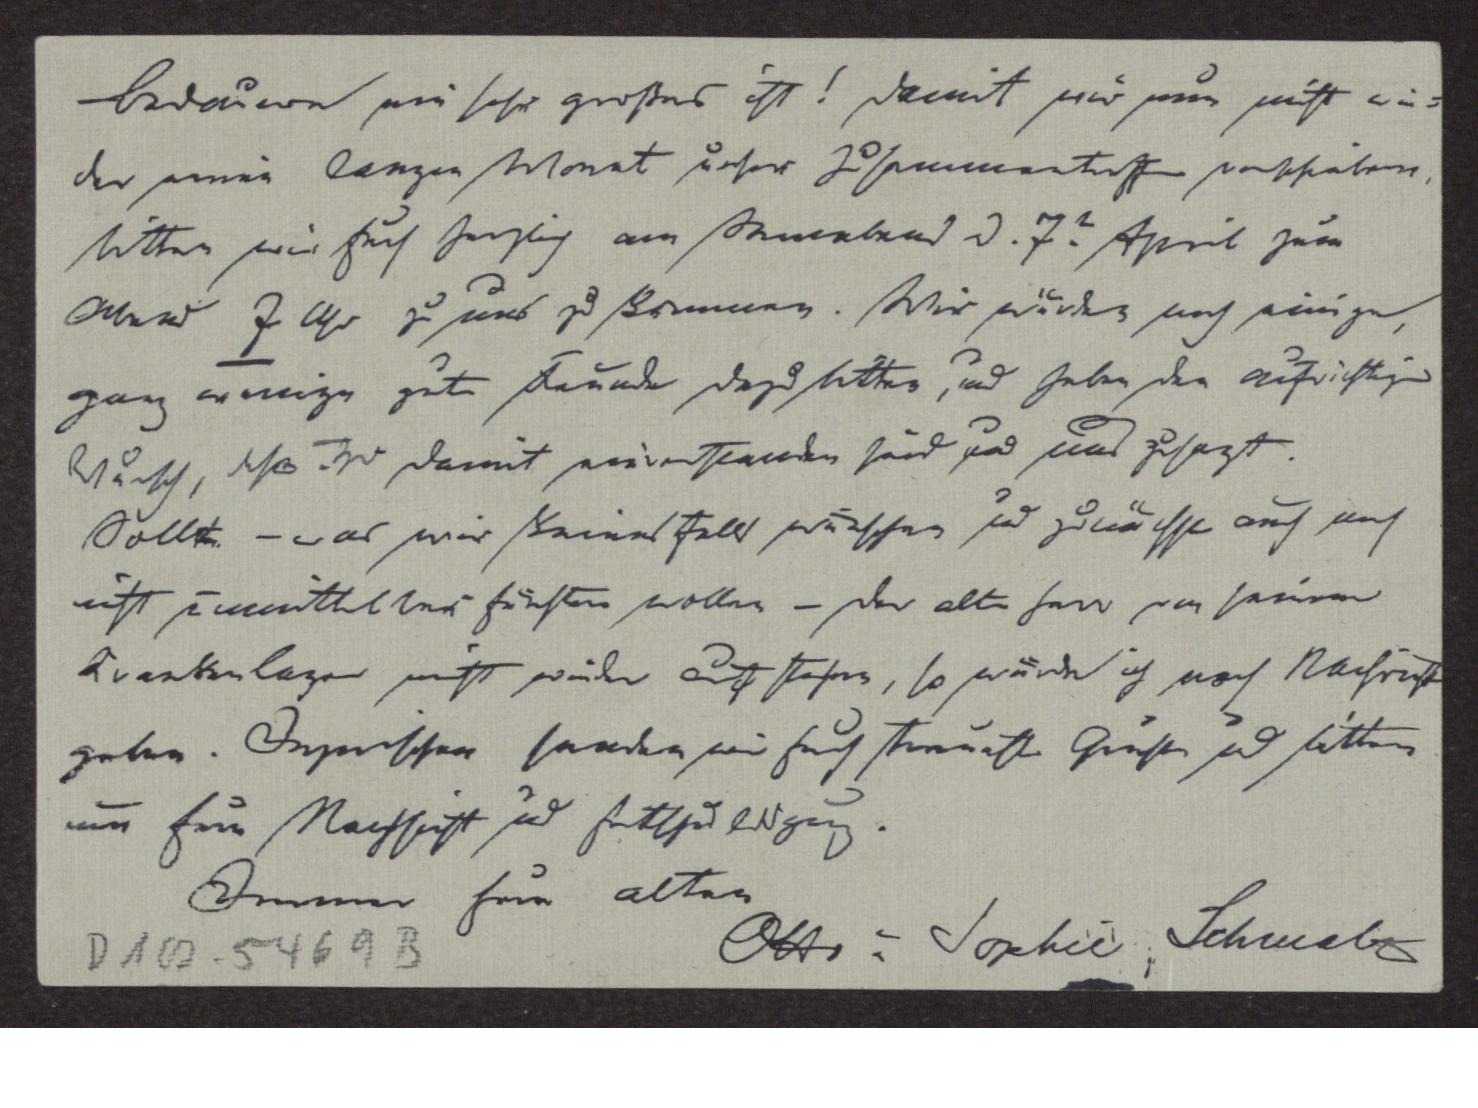 Bedauern ein sehr großes ist! Damit wir nun nicht wie=
der einen langen Monat unser Zusammentreffen verschieben,
bitten wir Euch herzlich am Sonnabend d. 7t. April zum
Abend 7 Uhr zu uns zu kommen. Wir würden noch einige,
ganz wenige gute Freunde dazu bitten, und haben den aufrichtigen
Wunsch, daß Ihr damit einverstanden seid und uns zusagt.
Sollte – was wir keinesfalls wünschen und zunächst auch noch
nicht unmittelbar fürchten wollen – der alte Herr von seinem
Krankenlager nicht wieder aufstehen, so würde ich noch Nachricht
geben. Inzwischen senden wir Euch Grüße und bitten
um Eure Nachsicht und Entschuldigung.
Immer Eure alten
Otto u. Sophie Schmalz
D 102.5469 B